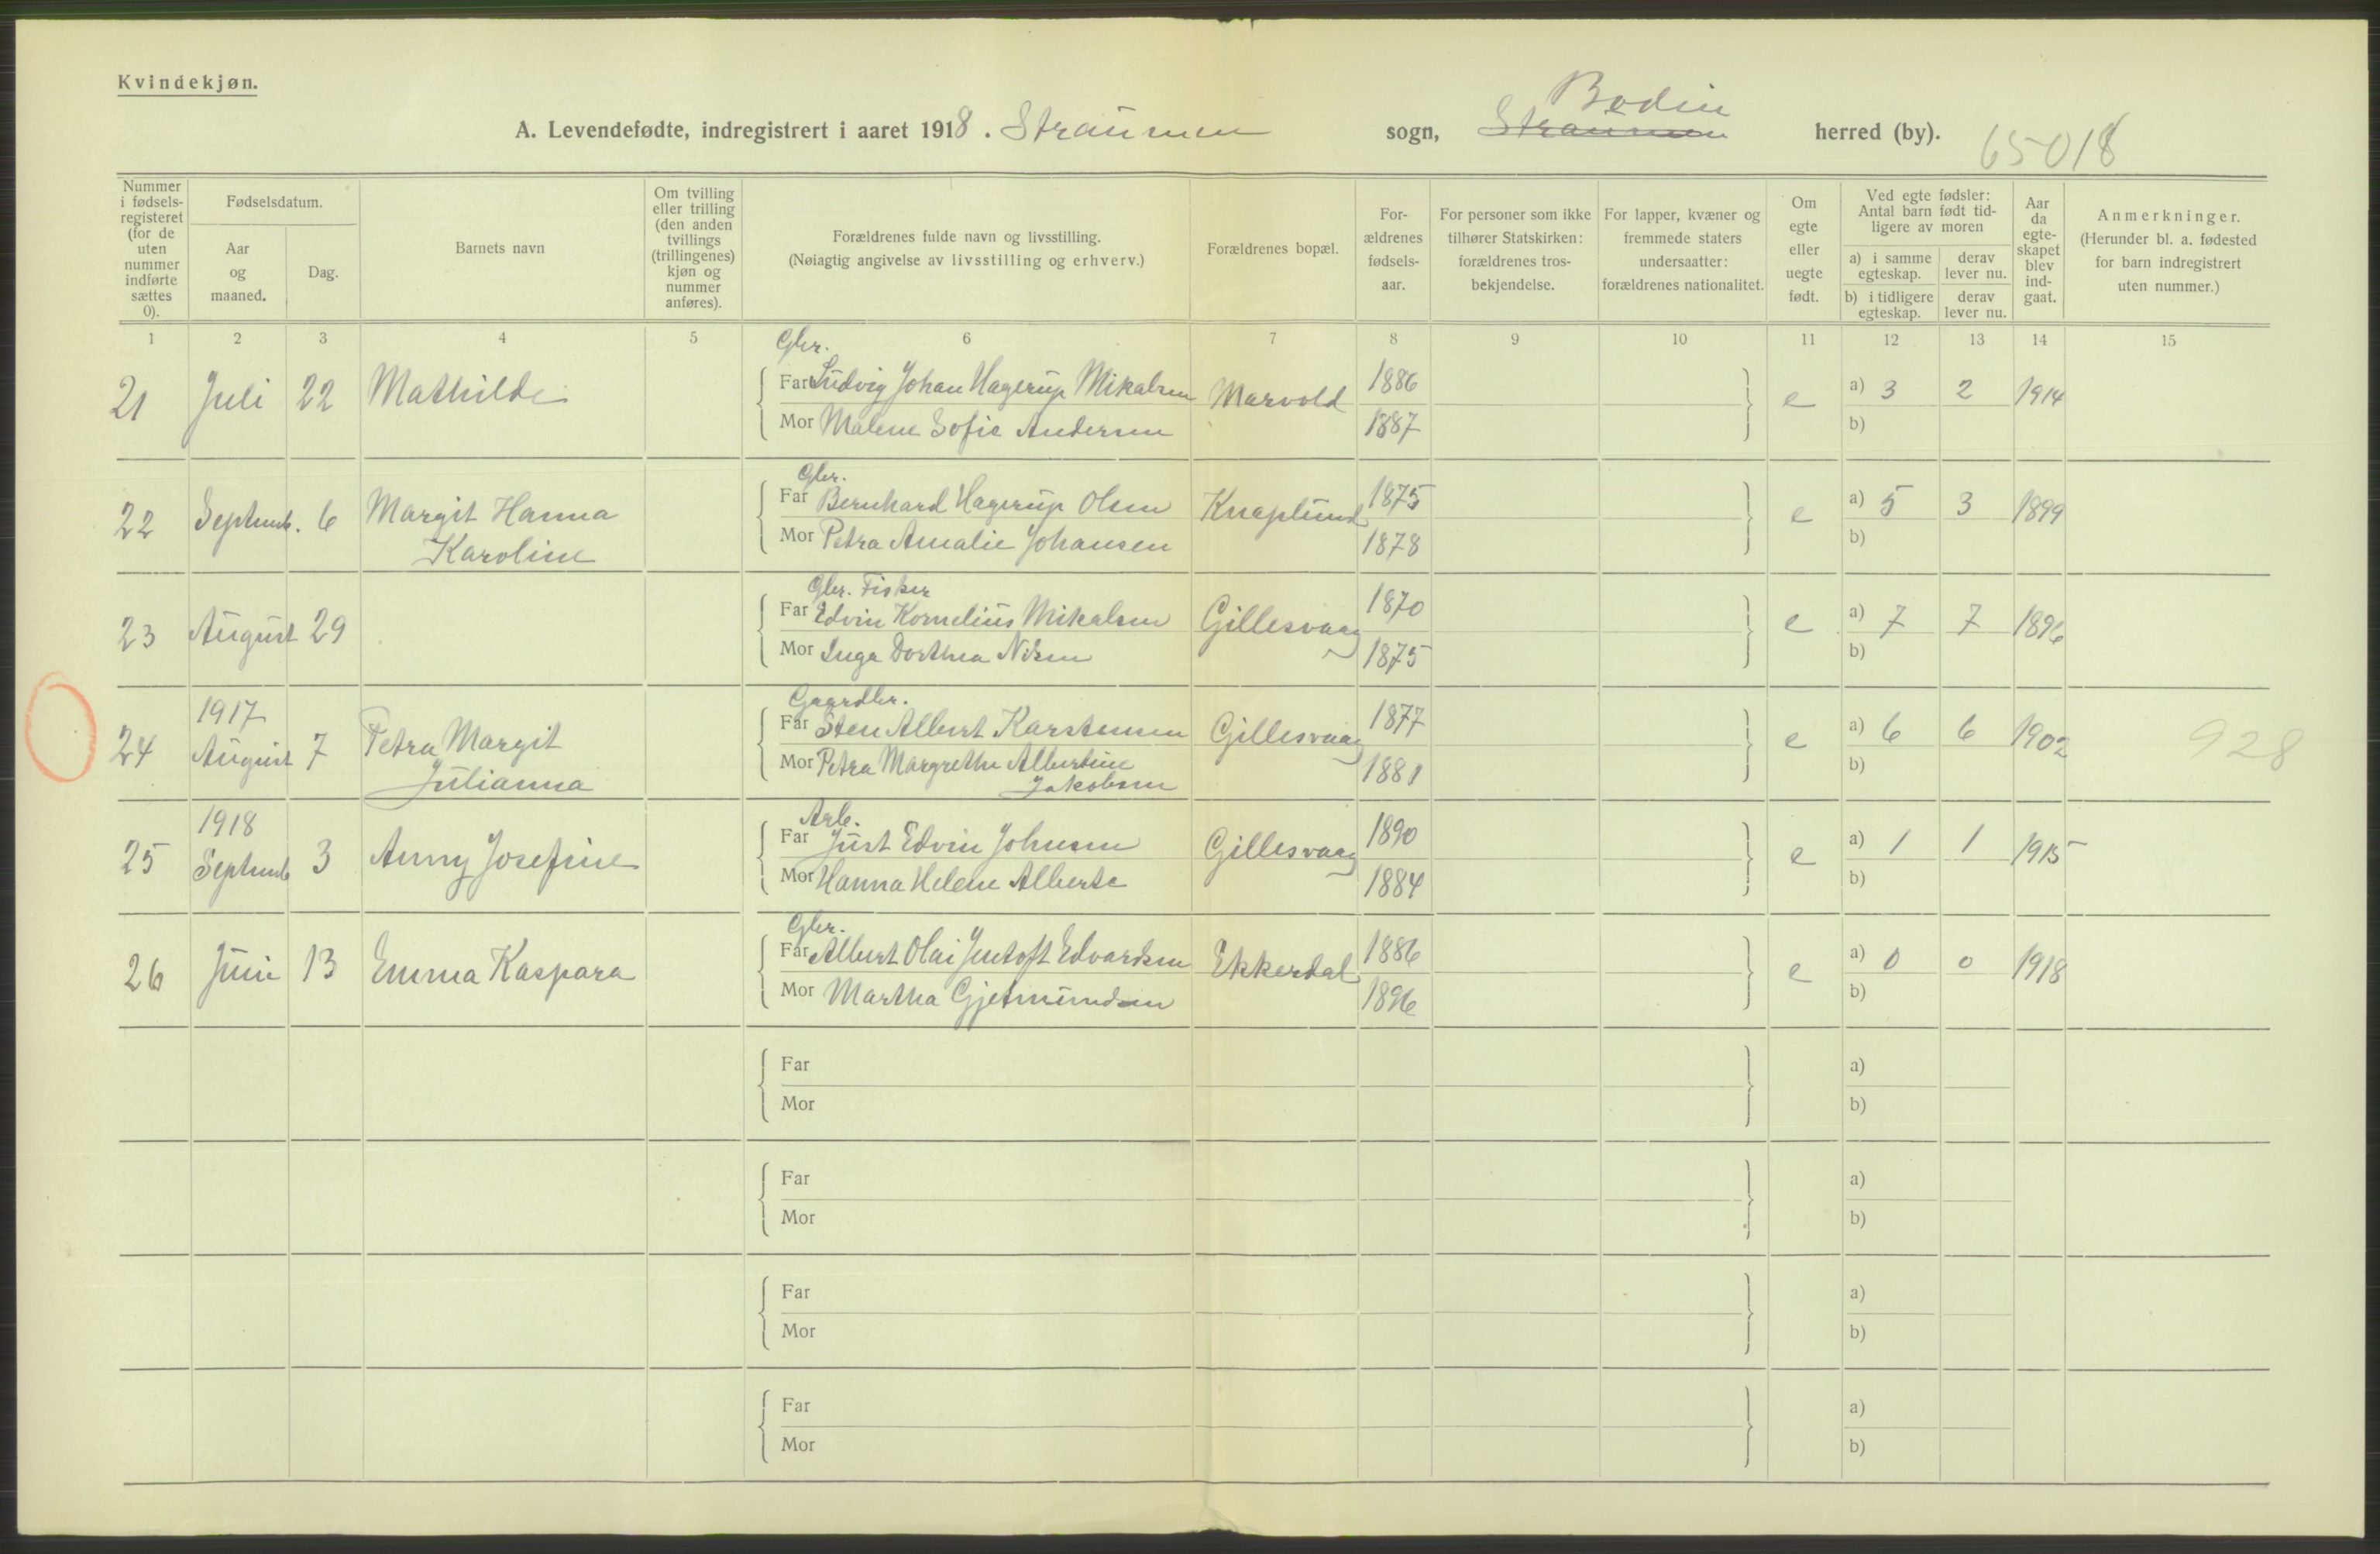 Kvindekjøn.
Bodin
A. Levendefødte, indregistrert i aaret 1918. Straumen sogn, Straumen herred (by). 65018
Nummer i fødsels-registeret (for de uten nummer indførte sættes 0).
Fødselsdatum.
Aar og maaned.
Dag.
Barnets navn
Om tvilling eller trilling (den anden tvillings (trillingenes) kjøn og nummer anføres).
Forældrenes fulde navn og livsstilling.
(Nøiagtig angivelse av livsstilling og erhverv.)
Forældrenes bopæl.
For-ældrenes fødsels-aar.
For personer som ikke tilhører Statskirken: forældrenes tros-bekjendelse.
For lapper, kvæner og fremmede staters undersaatter: forældrenes nationalitet.
Om egte eller uegte født.
Ved egte fødsler: Antal barn født tid-ligere av moren
a) i samme egteskap.
derav lever nu.
b) i tidligere egteskap.
derav lever nu.
Aar da egte-skapet blev ind-gaat.
Anmerkninger.
(Herunder bl. a. fødested for barn indregistrert uten nummer.)
1 2 3 4 5 6 7 8 9 10 11 12 13 14 15
Gbr.
21 Juli 22 Mathilde Far Ludvig Johan Hagerup Mikalsen Marvold 1886 e a) 3 2 1914
Mor Malene Sofie Andersen 1887 b)
Gbr.
22 Septemb. 6 Margit Hanna Far Bernhard Hagerup Olsen Knaplund 1875 e a) 5 3 1899
Karoline Mor Petra Amalie Johansen 1878 b)
Gbr. Fisker
23 August 29 Far Edvin Kornelius Mikalsen Gillesvaag 1870 e a) 7 7 1896
Mor Inga Dorthea Nilsen 1875 b)
1917 Gaardbr.
24 August 7 Petra Margit Far Sten Albert Karstensen Gillesvaag 1877 e a) 6 6 1902 928
Julianna Mor Petra Margrethe Albertine 1881 b)
Jakobsen
1918 Arb.
25 Septemb 3 Anny Josefine Far Just Edvin Johnsen Gillesvaag 1890 e a) 1 1 1915
Mor Hanna Helene Alberte 1884 b)
Gbr.
26 Juni 13 Emma Kaspara Far Albert Olai Jentoft Edvardsen Ekkerdal 1886 e a) 0 0 1918
Mor Martha Gjetmundsen 1896 b)
Far a)
Mor b)
Far a)
Mor b)
Far a)
Mor b)
Far a)
Mor b)